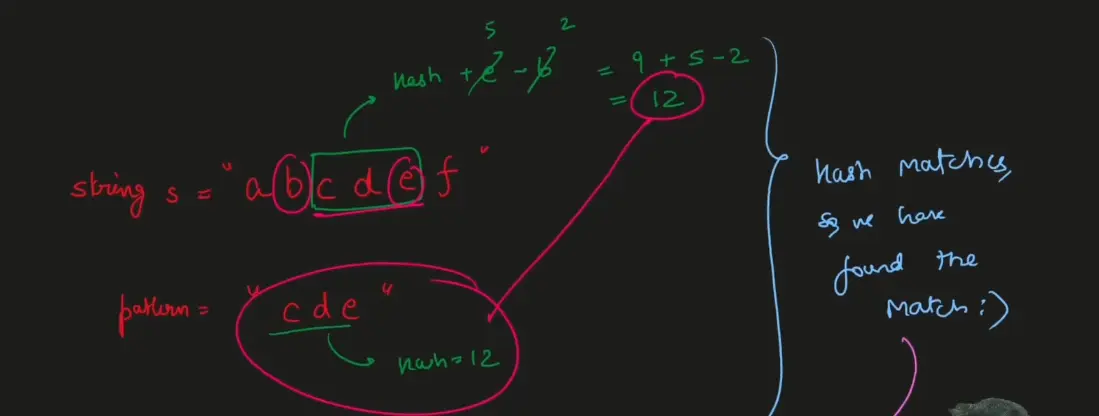 5 2
hash + e - b = 9 + 5 - 2
= 12
string s = "a b c d e f"
pattern = "c d e"
hash = 12
hash matches,
so we have
found the
match :)